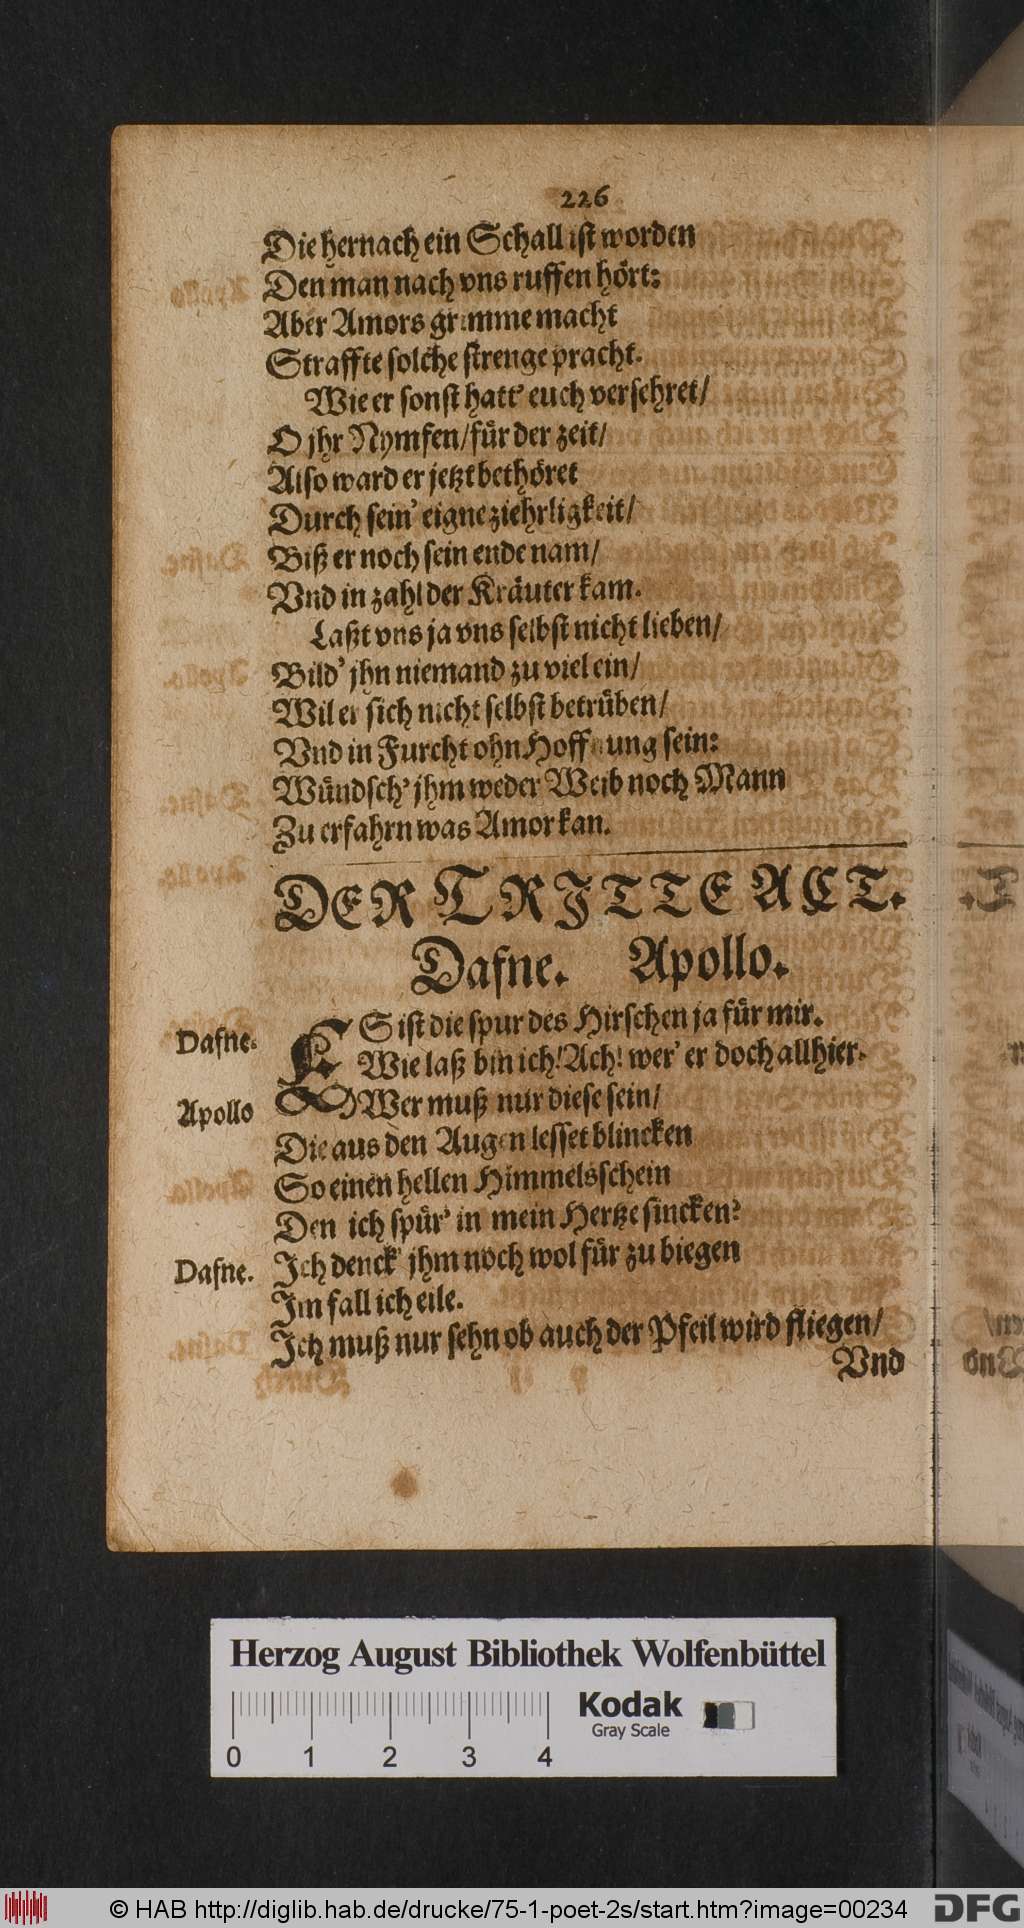 226
Die hernach ein Schall ist worden
Den man nach vns ruffen hört:
Aber Amors grimme macht
Straffte solche strenge pracht.
Wie er sonst hatt' euch versehret/
O jhr Nymfen/für der zeit/
Also ward er jetzt bethöret
Durch sein' eigne ziehrligkeit/
Biß er noch sein ende nam/
Vnd in zahl der Kräuter kam.
Laßt vns ja vns selbst nicht lieben/
Bild' jhn niemand zu viel ein/
Wil er sich nicht selbst betrüben/
Vnd in Furcht ohn Hoffnung sein:
Wündsch' jhm weder Weib noch Mann
Zu erfahrn was Amor kan.
DER TRITTE ACT.
Dafne. Apollo.
Dafne. ES ist die spur des Hirschen ja für mir.
Wie laß bin ich! Ach! wer' er doch allhier.
Apollo Wer muß nur diese sein/
Die aus den Augen lesset blincken
So einen hellen Himmelsschein
Den ich spür' in mein Hertze sincken?
Dafne. Ich denck' jhm noch wol für zu biegen
Im fall ich eile.
Ich muß nur sehn ob auch der Pfeil wird fliegen/
Vnd
Herzog August Bibliothek Wolfenbüttel
Kodak
Gray Scale
0 1 2 3 4
© HAB http://diglib.hab.de/drucke/75-1-poet-2s/start.htm?image=00234
DFG